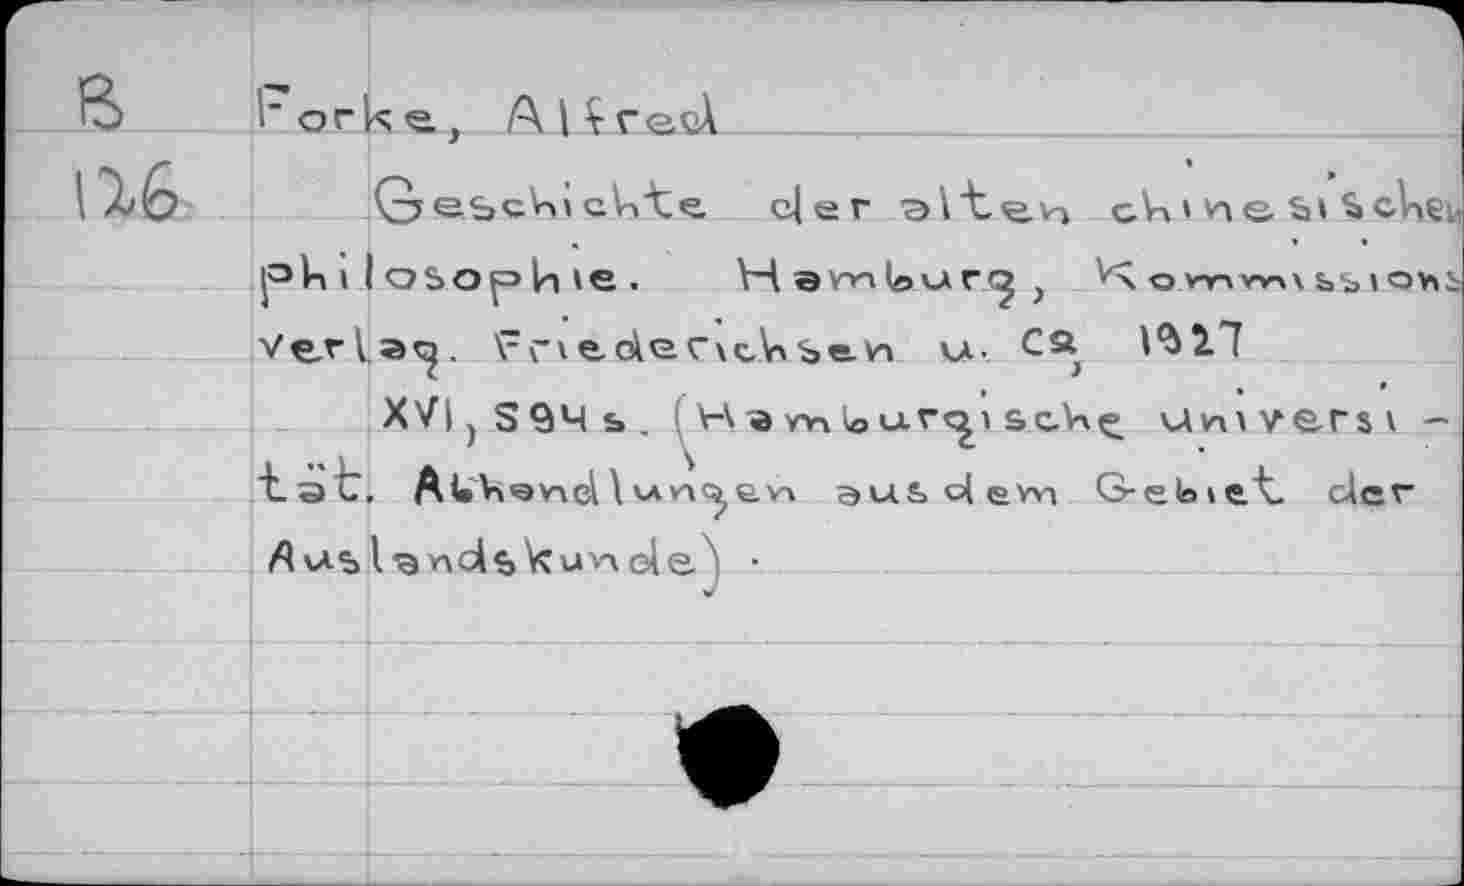 B Forke, Alfred
126 Geschichte der alten chinesischen
philosophie. Hamburg, Kommissions
verlag. Friederichsen u. Co, 1927
XVI, 594 s. (Hamburgische Universi-
tät. Abhandlungen aus dem Gebiet der
Auslandskunde).